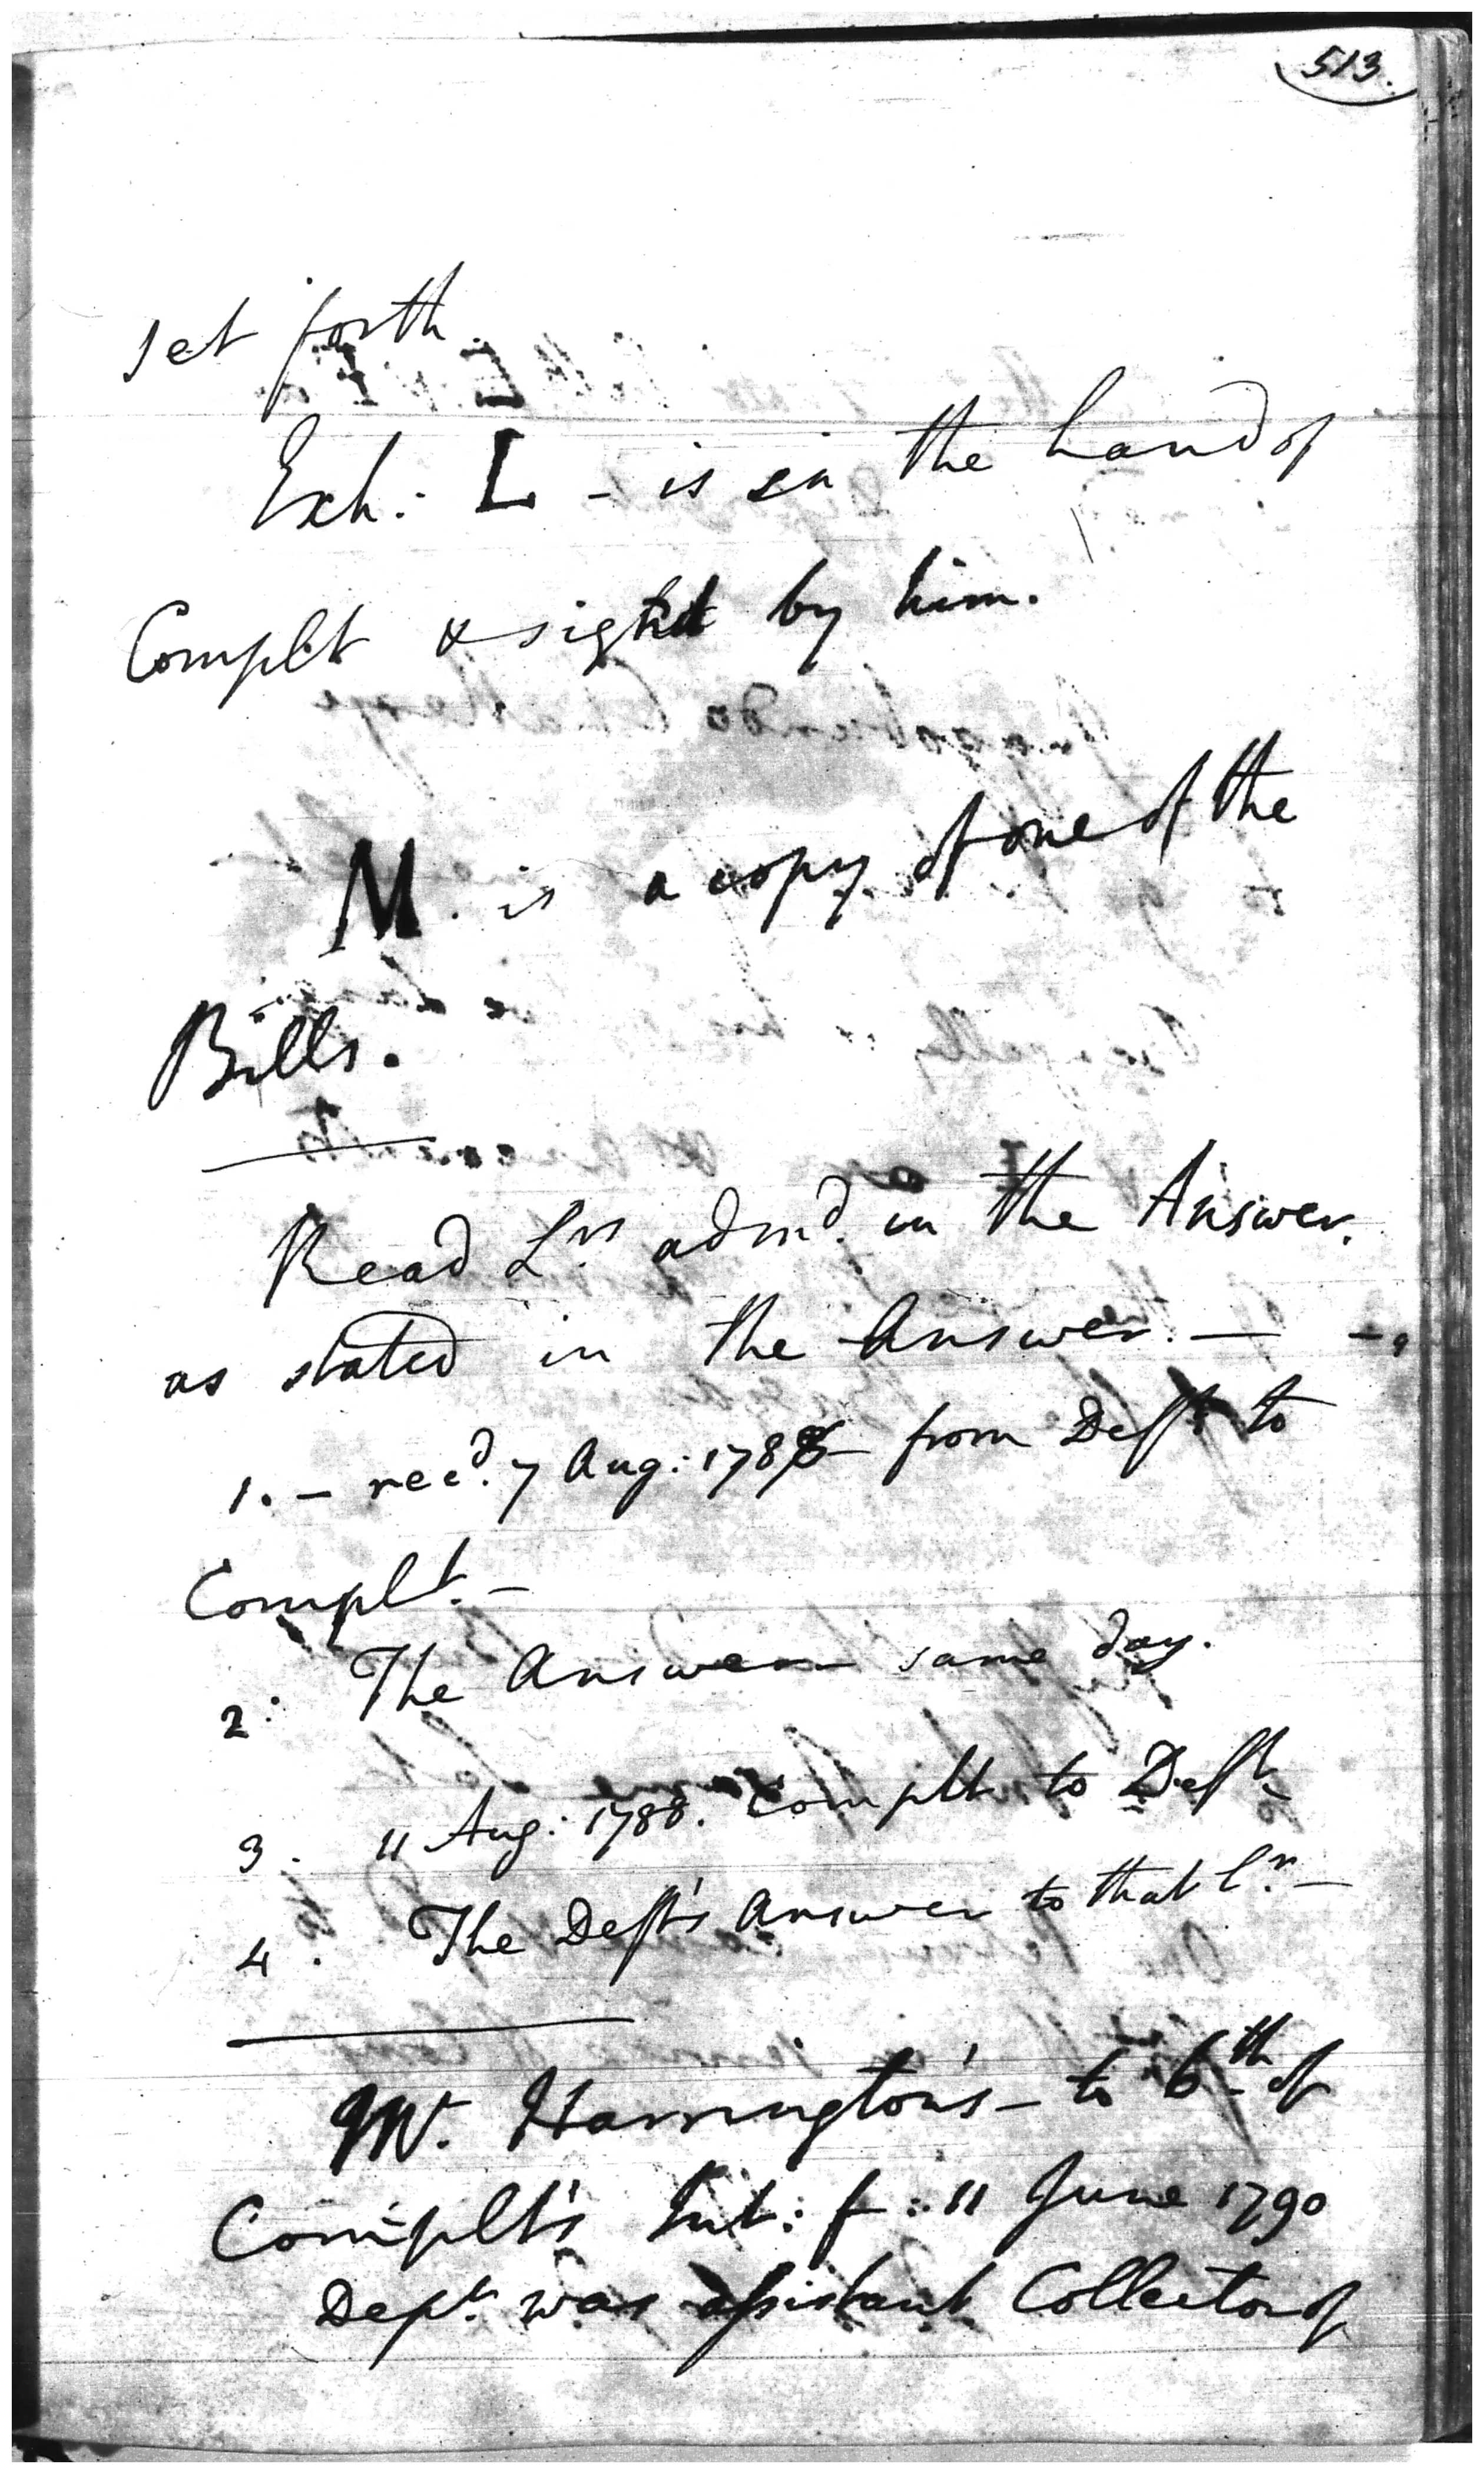 513.
set forth.
Exh: L - is in the hand of
Complt & signd by him.
M. is a copy of one of the
Bills.
Read Lrs admd. in the Answer.
as stated in the Answer. —
1. — recd. 7 Aug: 1788 — from Deft to
Complt. —
2. The Answer same day.
3. 11 Aug: 1788. Complt to Deft.
4. The Deft's Answer to that Lr. —
Mr. Harrington's — to 6th of
Complt's Int: f: 11 June 1790
Dept. was assistant Collector of